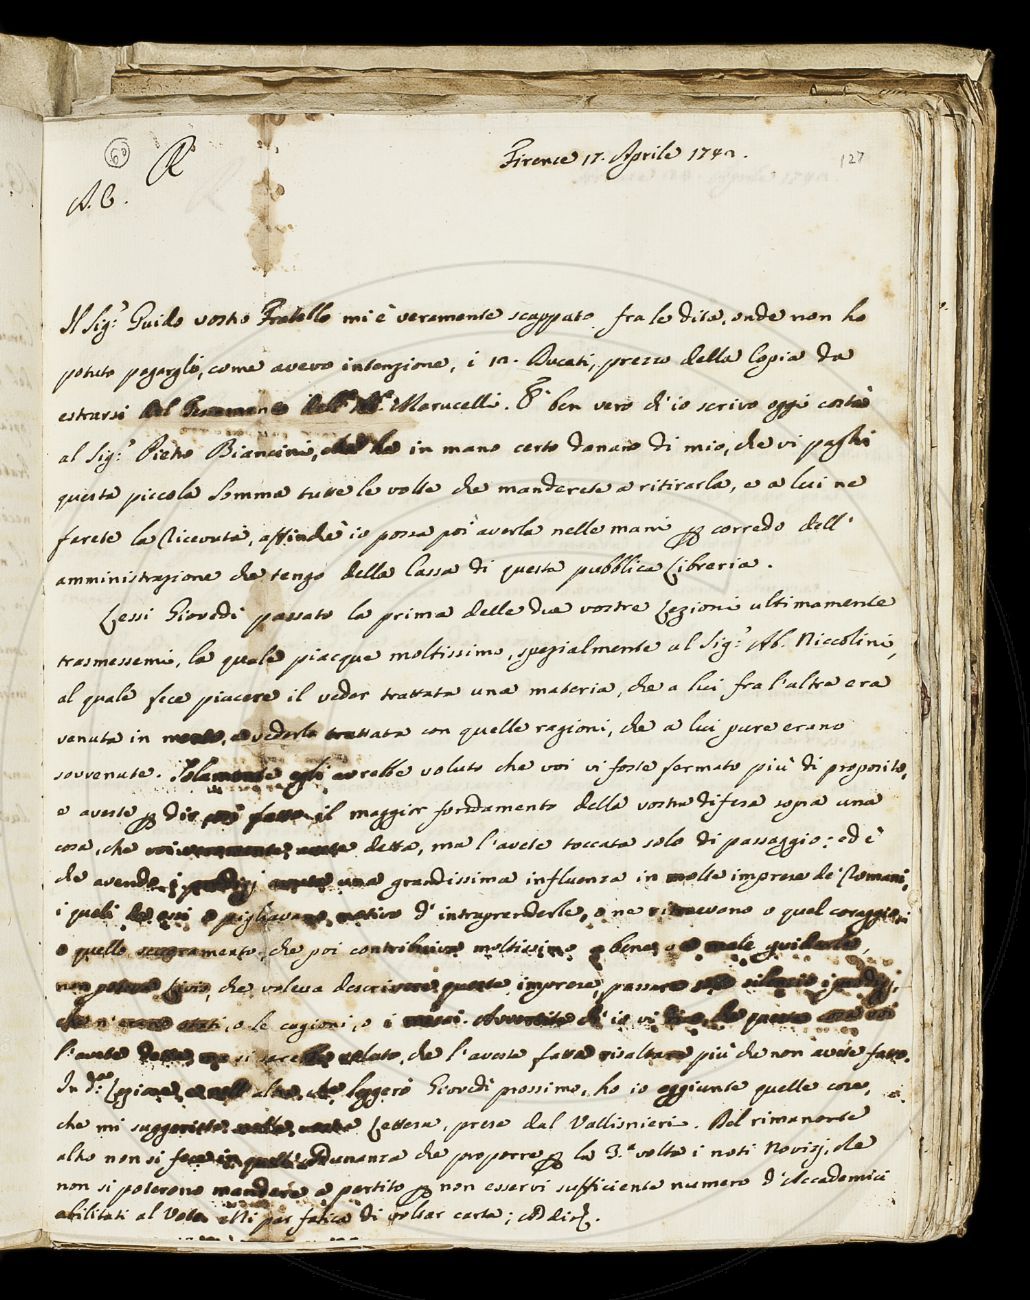 60
R
Firenze 17. Aprile 174
127
A. C.
Il Sig.r Guido vostro Fratello mi è veramente scappato fra le dita, onde non ho
potuto pagargli, come avevo intenzione, i Ducati, prezzo della Copia da
estrarsi del Testamento dell' Ab.e Marucelli. È ben vero ch'io scrivo oggi costà
al Sig.r Pietro Biancini, che ha in mano certo danaro di mio, che vi paghi
questa piccola somma tutte le volte che manderete a ritirarla, e a lui ne
farete la Ricevuta, affinchè io possa poi averla nelle mani per corredo dell'
amministrazione che tengo della Cassa di questa pubblica Libreria.
Lessi Giovedì passato la prima delle due vostre Lezioni ultimamente
trasmessemi, la quale piacque moltissimo, spezialmente al Sig.r Ab. Niccolini,
al quale fece piacere il veder trattata una materia, che a lui fra l'altre era
venuta in mente, e vederla trattata con quelle ragioni, che a lui pure erano
sovvenute. Solamente egli avrebbe voluto che voi vi foste fermato più di proposito,
e aveste per dir così fatto il maggior fondamento della vostra difesa sopra una
cosa, che voi veramente avete detta, ma l'avete toccata solo di passaggio: ed è
che avendo i prodigj avuta una grandissima influenza in molte imprese de' Romani,
i quali da essi o pigliavano motivo d'intraprenderle, o ne ritraevono o quel coraggio,
o quello scoramento, che poi contribuiva moltissimo a bene, o a male guidarle,
non poteva Livio, che voleva descrivere queste imprese, passare sotto silenzio i prodigj,
che n'erano stati, o le cagioni, o i mezzi. Avvertite ch'io vi dico, che questa cosa voi
l'avete detta, ma si sarebbe voluto, che l'aveste fatta risaltare più che non avete fatto.
In d.a Lezione, e nell' altra, che leggerò Giovedì prossimo, ho io aggiunte quelle cose,
che mi suggeriste nella vostra Lettera, prese dal Vallisnieri. Del rimanente
altro non si fece in quell' Adunanza che proporre per la 3.a volta i noti Novizj, che
non si poterono mandare a partito per non esservi sufficiente numero d'Accademici
abilitati al Voto. Mi par fatica di voltar carta; Addio.